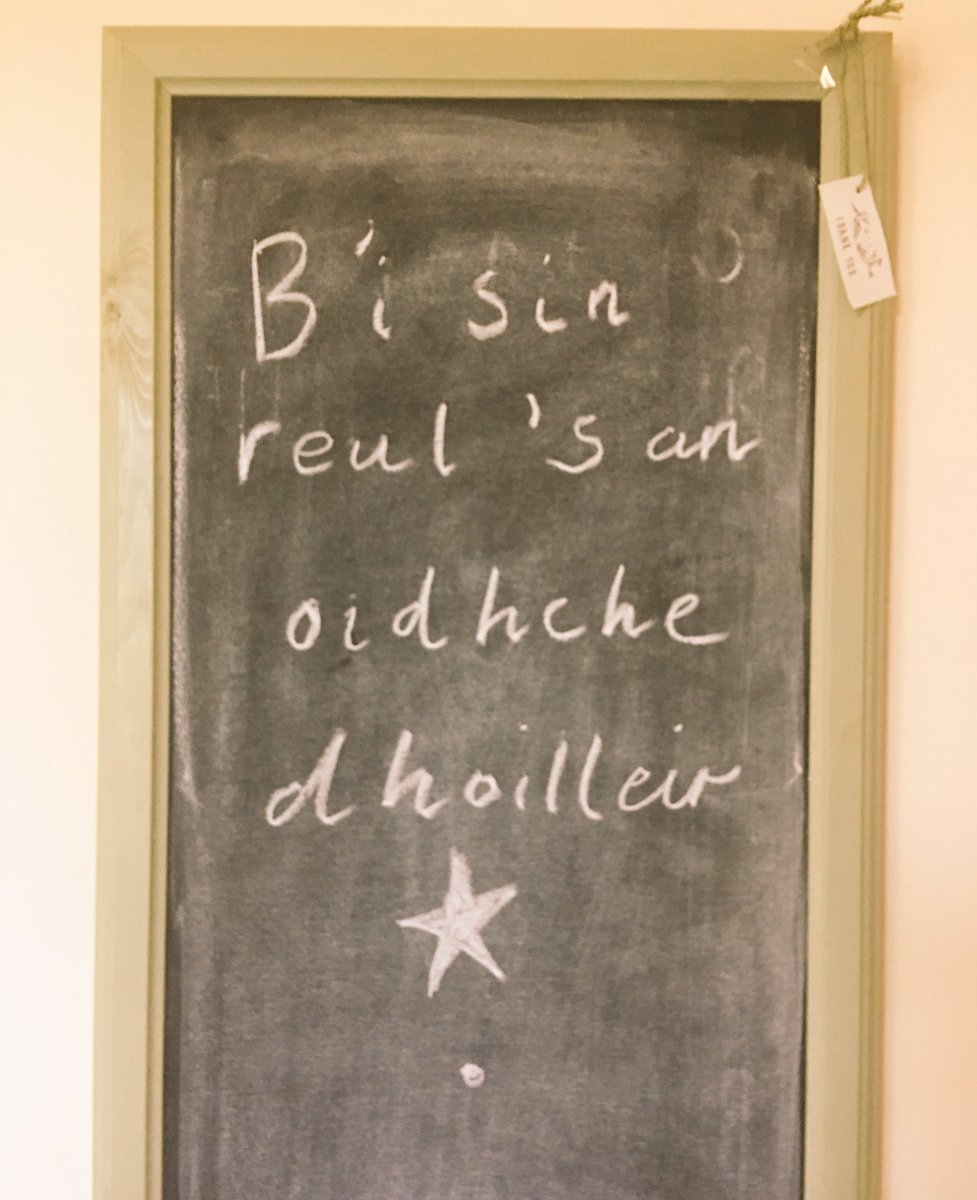 B'i sin
reul 's an
oidhche
dhoilleir
THANK YOU